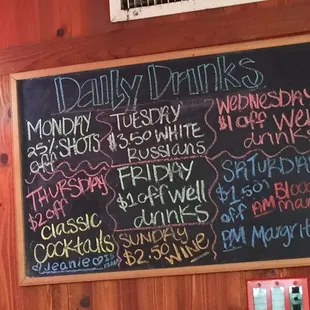 Daily Drinks
MONDAY
25% SHOTS
off
TUESDAY
$3.50 WHITE
Russians
WEDNESDAY
$1 off Well
drinks
THURSDAY
$2 off
Classic
Cocktails
Jeanie
FRIDAY
$1 off well
drinks
SUNDAY
$2.50 Wine
SATURDAY
$1.50
off
AM
PM